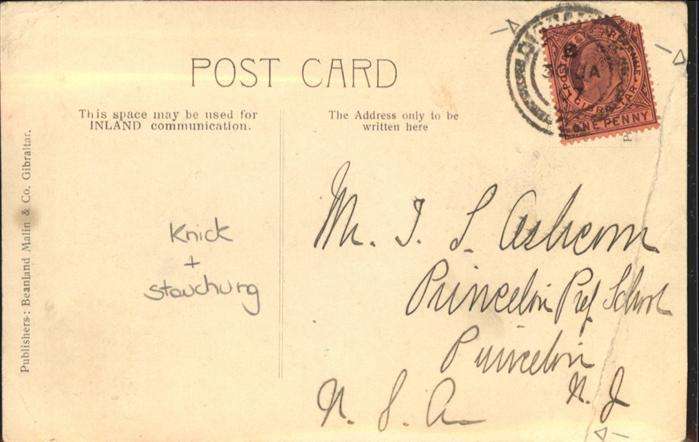 POST CARD
This space may be used for
INLAND communication.
The Address only to be
written here
Publishers: Beanland Malin & Co. Gibraltar.
POSTAGE & REVENUE
GIBRALTAR
ONE PENNY
Knick
+
Stauchung
Mr. T. S. Ashcom
Princeton Pref School
Princeton
N. J
U. S. A